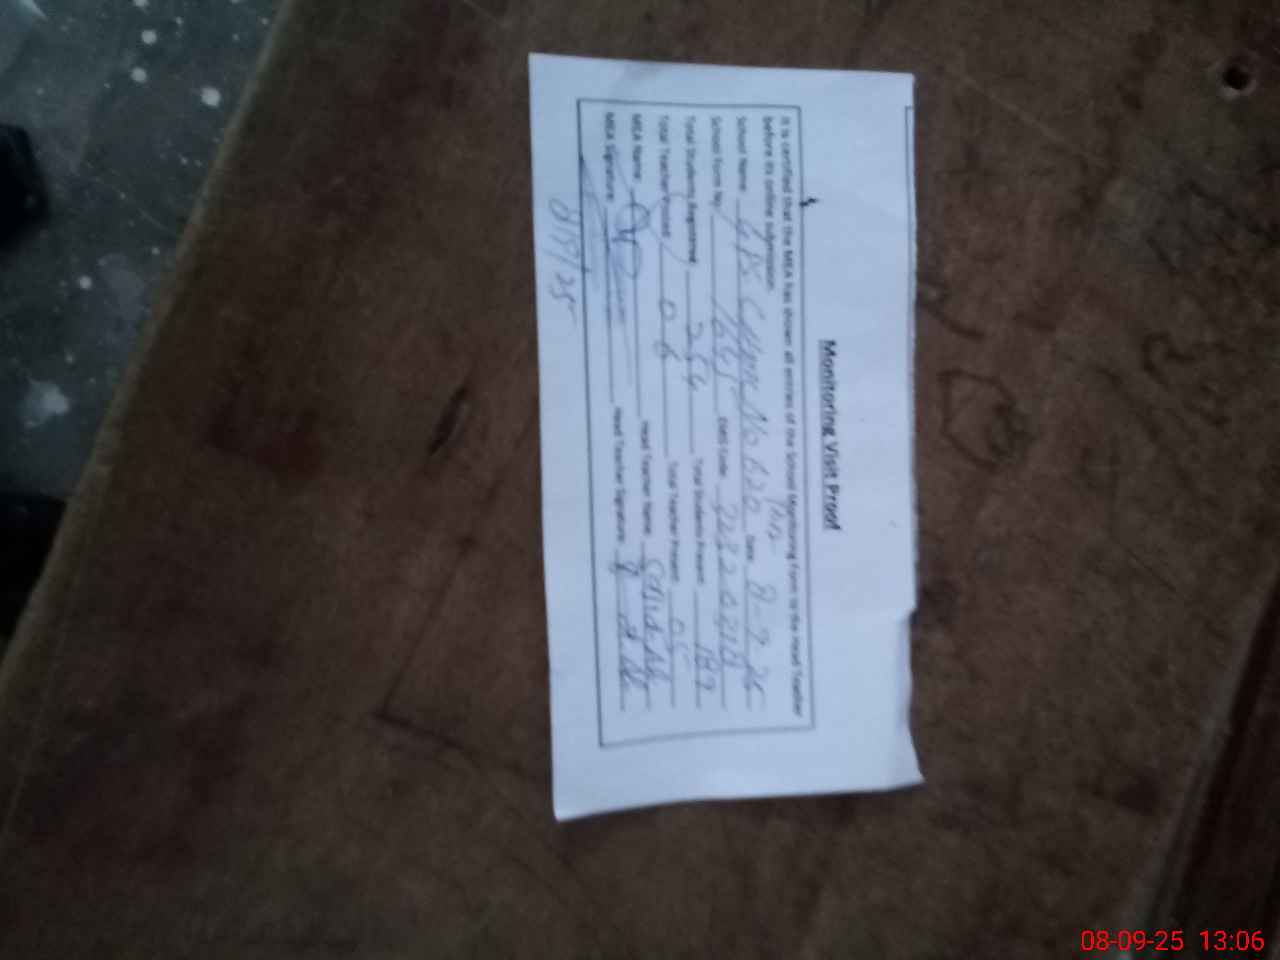 Monitoring Visit Proof
It is certified that the MEA has shown all entries of the School Monitoring Form to the Head Teacher
before its online submission.
School Name GPS No Date 8-9-25
School Form No EMIS Code
Total Students Registered 254 Total Students Present 187
Total Teacher Posted 06 Total Teacher Present 05
MEA Name Head Teacher Name
MEA Signature Head Teacher Signature
8/9/25
08-09-25 13:06